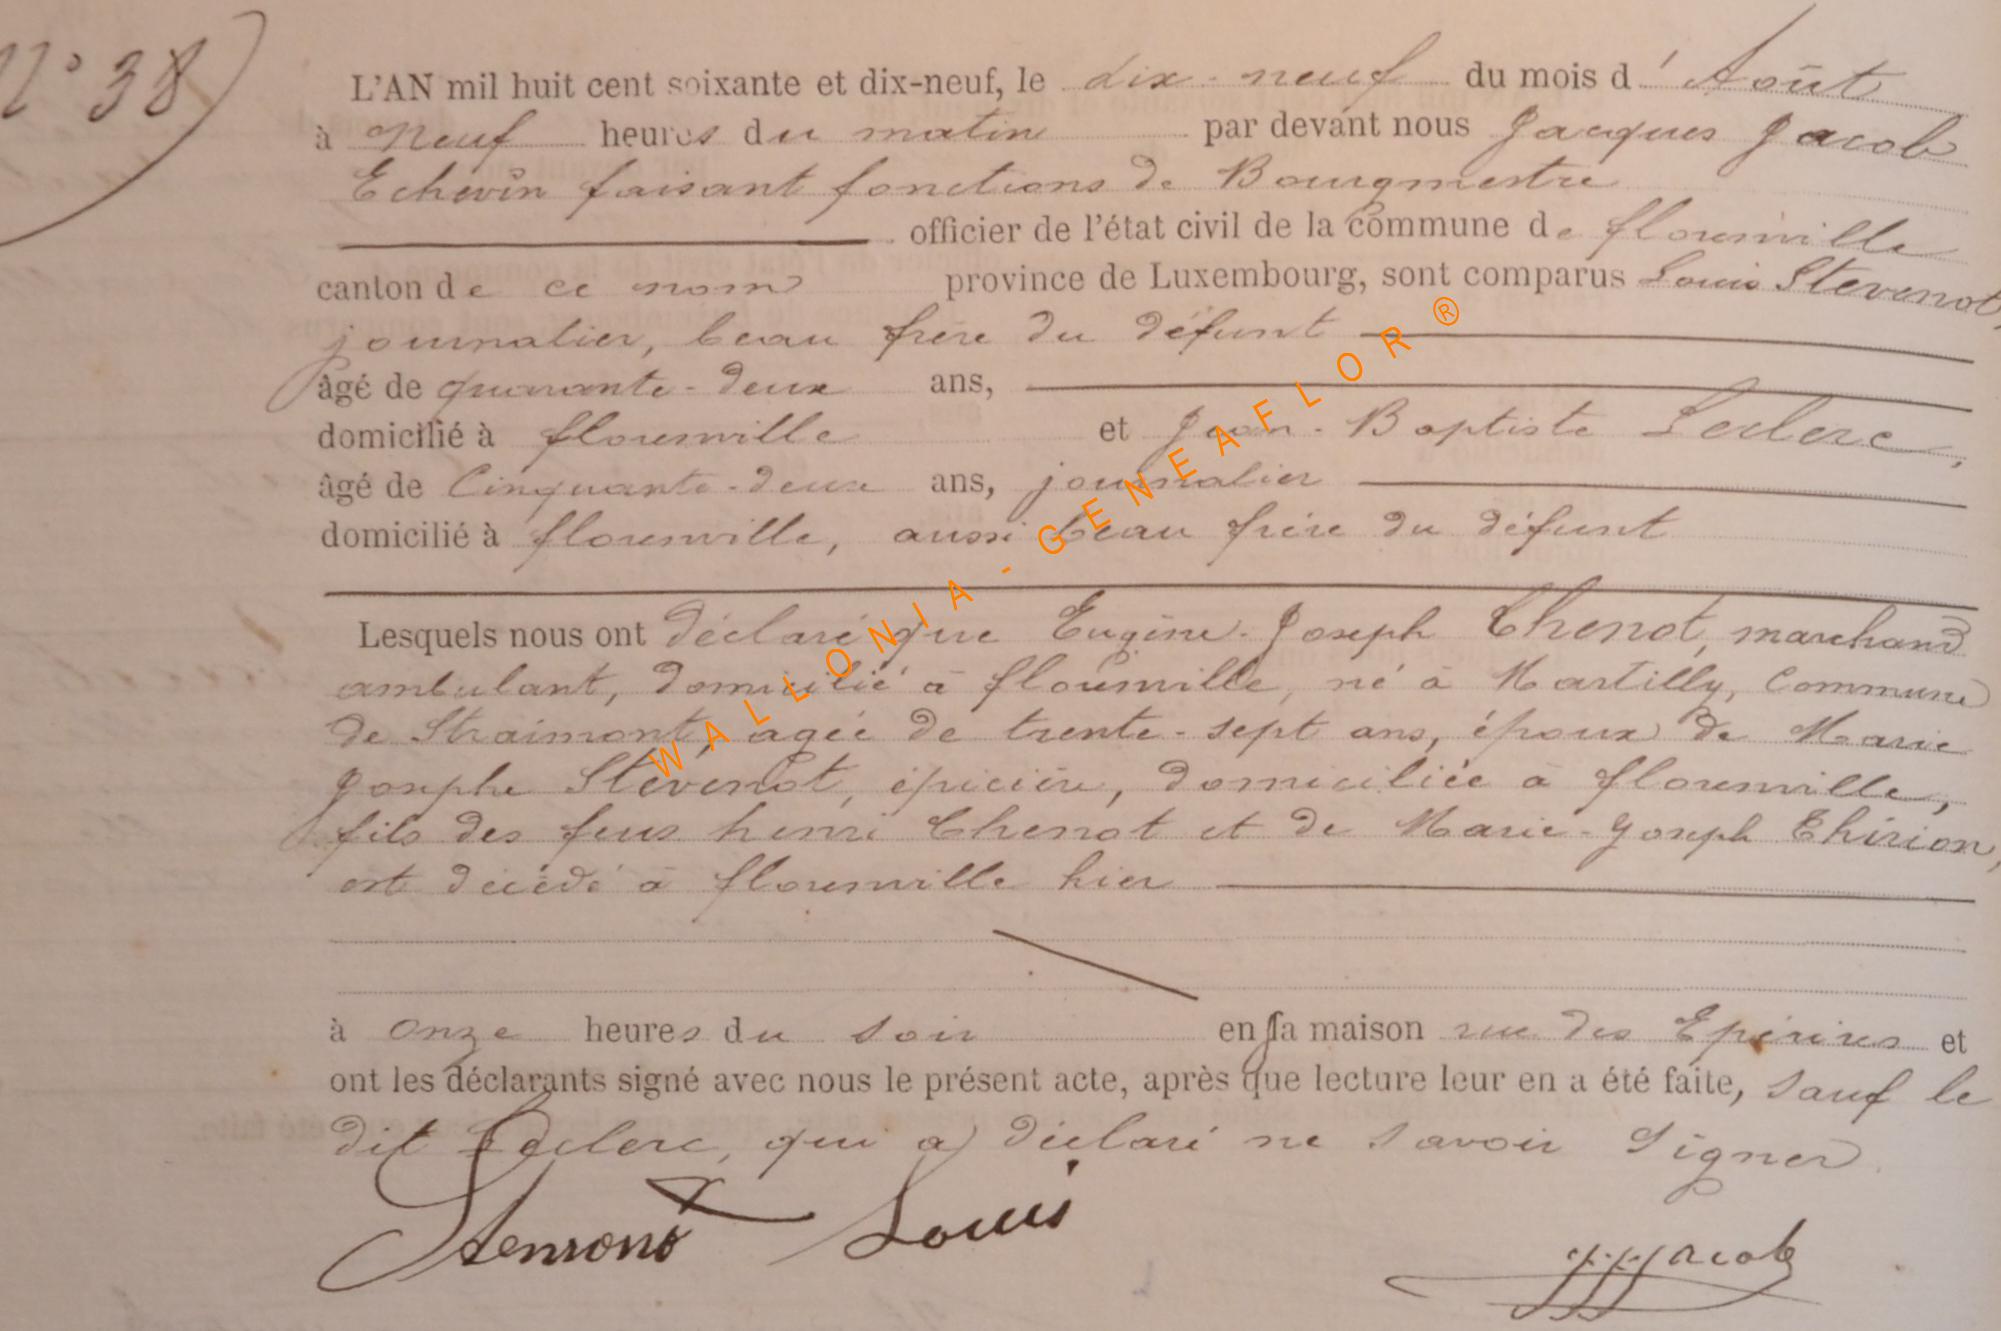 N° 38
L'AN mil huit cent soixante et dix-neuf, le dix-neuf du mois d'Août
à neuf heures du matin par devant nous Jacques Jacob
Echevin faisant fonctions de Bourgmestre
officier de l'état civil de la commune de florenville
canton de ce nom province de Luxembourg, sont comparus Louis Stevenot,
journalier, beau frère du défunt
âgé de quarante-deux ans,
domicilié à florenville et Jean-Baptiste Leclerc,
âgé de Cinquante-deux ans, journalier
domicilié à florenville, aussi beau frère du défunt
Lesquels nous ont déclaré que Eugène-Joseph Chenot, marchand
ambulant, domicilié à florenville, né à Martilly, Commune
de Straimont, agée de trente-sept ans, époux de Marie
Josephe Stevenot, épicière, domiciliée à florenville,
fils des feus henri Chenot et de Marie-Joseph Thirion,
est décédé à florenville hier
à onze heures du soir en sa maison rue des Epérires et
ont les déclarants signé avec nous le présent acte, après que lecture leur en a été faite, sauf le
dit Leclerc, qui a déclaré ne savoir signer
Louis
J.J. Jacob
WALLONIA-GENEAFLOR®